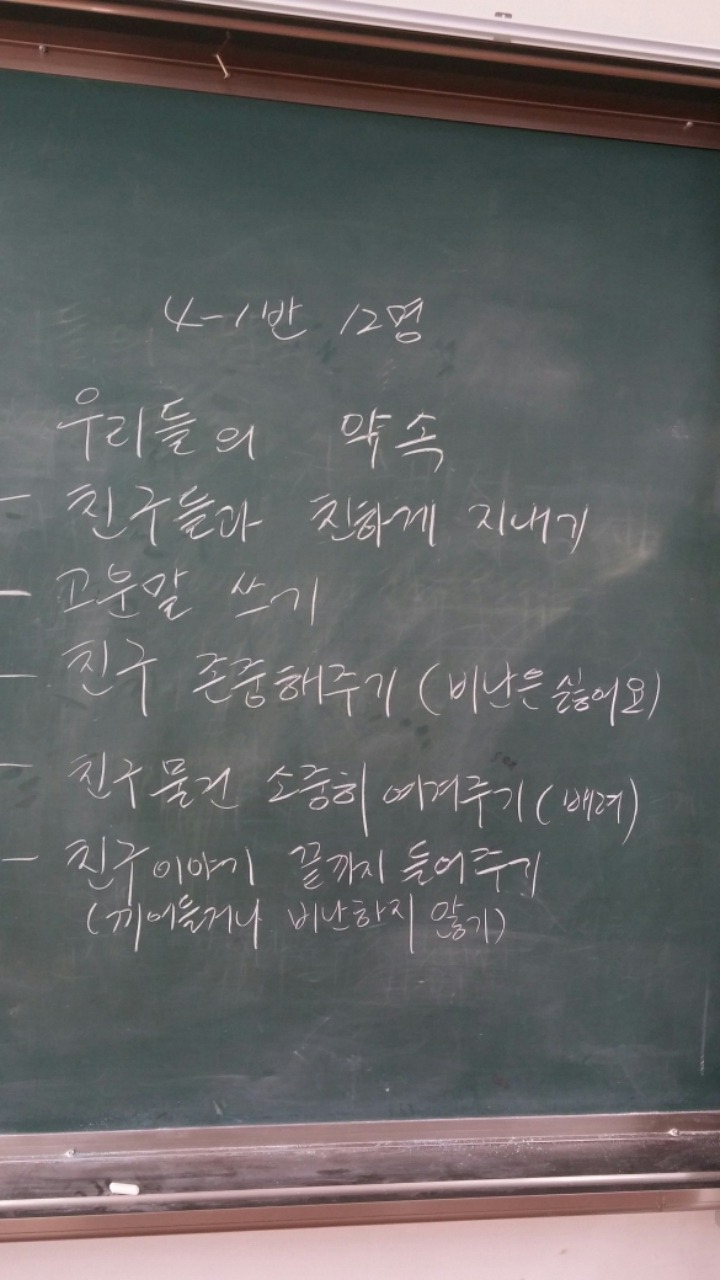 4-1반 12명
우리들의 약속
- 친구들과 친하게 지내기
- 고운말 쓰기
- 친구 존중해주기 (비난은 싫어요)
- 친구물건 소중히 여겨주기 (배려)
- 친구이야기 끝까지 들어주기
(끼어들거나 비난하지 않기)